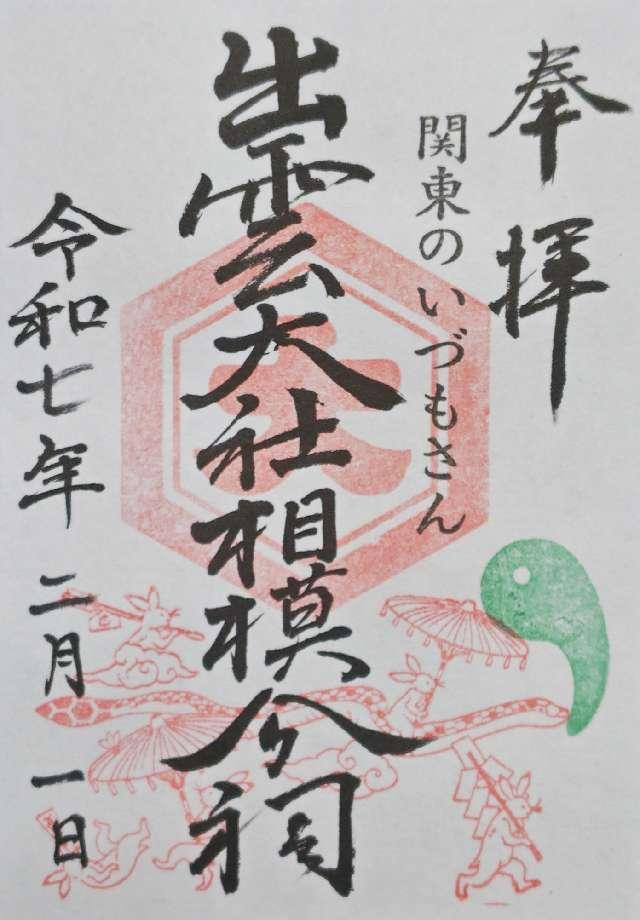 奉拝
関東のいづもさん
出雲大社相模分祠
大
令和七年二月一日